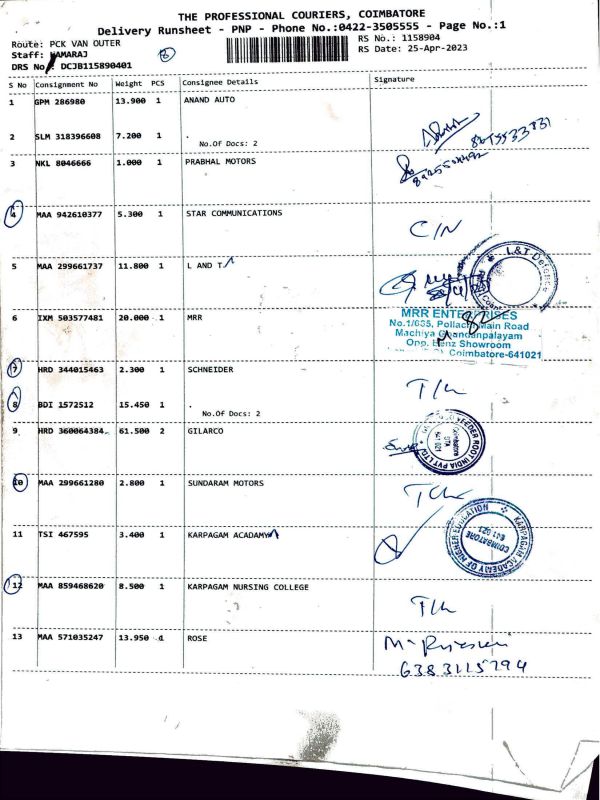 THE PROFESSIONAL COURIERS, COIMBATORE
Delivery Runsheet - PNP - Phone No.:0422-3505555 - Page No.:1
Route: PCK VAN OUTER
RS No.: 1158904
Staff: KAMARAJ
RS Date: 25-Apr-2023
DRS No : DCJB115890401
S No Consignment No Weight PCS Consignee Details Signature
1 GPM 286980 13.900 1 ANAND AUTO
2 SLM 318396608 7.200 1 .
No.Of Docs: 2
3 NKL 8046666 1.000 1 PRABHAL MOTORS
4 MAA 942610377 5.300 1 STAR COMMUNICATIONS
C/N
5 MAA 299661737 11.800 1 L AND T
L&T Defence
6 IXM 503577481 20.000 1 MRR
MRR ENTERPRISES
No.1/635, Pollachi Main Road
Machiya Goundanpalayam
Opp. Benz Showroom
Coimbatore-641021
7 HRD 344015463 2.300 1 SCHNEIDER
T/L
8 BDI 1572512 15.450 1 .
No.Of Docs: 2
9 HRD 360064384 61.500 2 GILARCO
VEEDER ROOT INDIA PVT LTD
10 MAA 299661280 2.800 1 SUNDARAM MOTORS
11 TSI 467595 3.400 1 KARPAGAM ACADAMY
KARPAGAM ACADEMY OF HIGHER EDUCATION
COIMBATORE
641 021
12 MAA 859468620 8.500 1 KARPAGAM NURSING COLLEGE
T/L
13 MAA 571035247 13.950 1 ROSE
6383115794